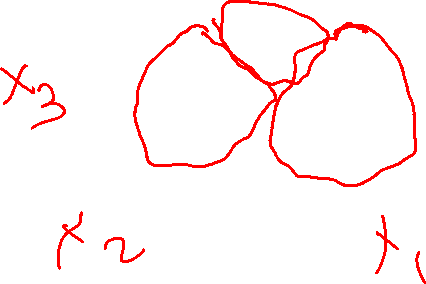 x3
x2
x1